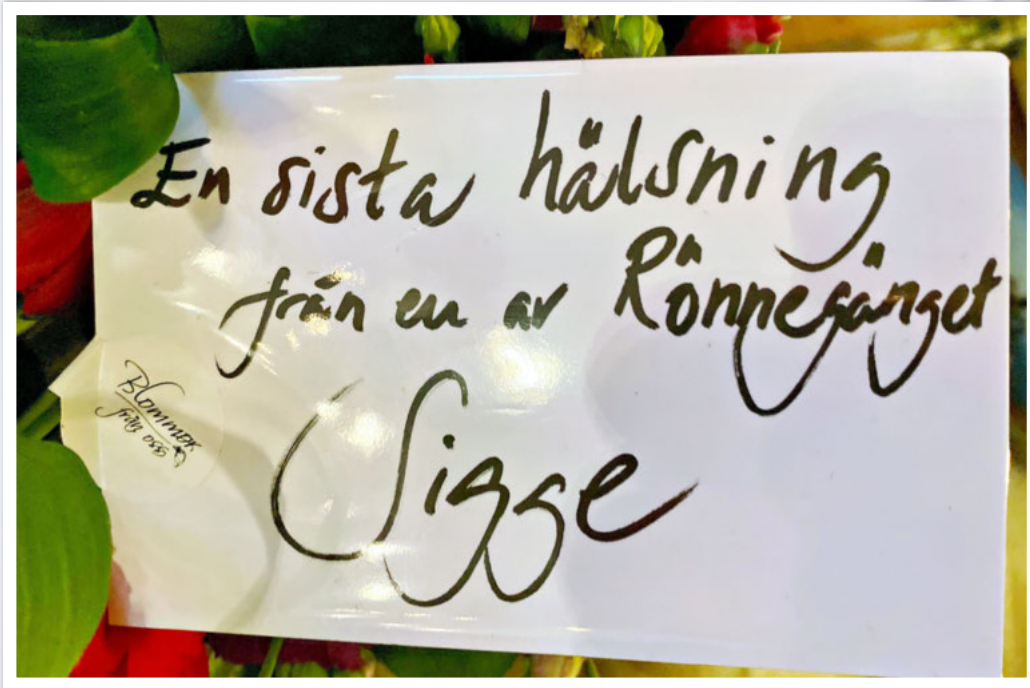 En sista hälsning
från en av Rönnegänget
Sigge
Blommor
från oss